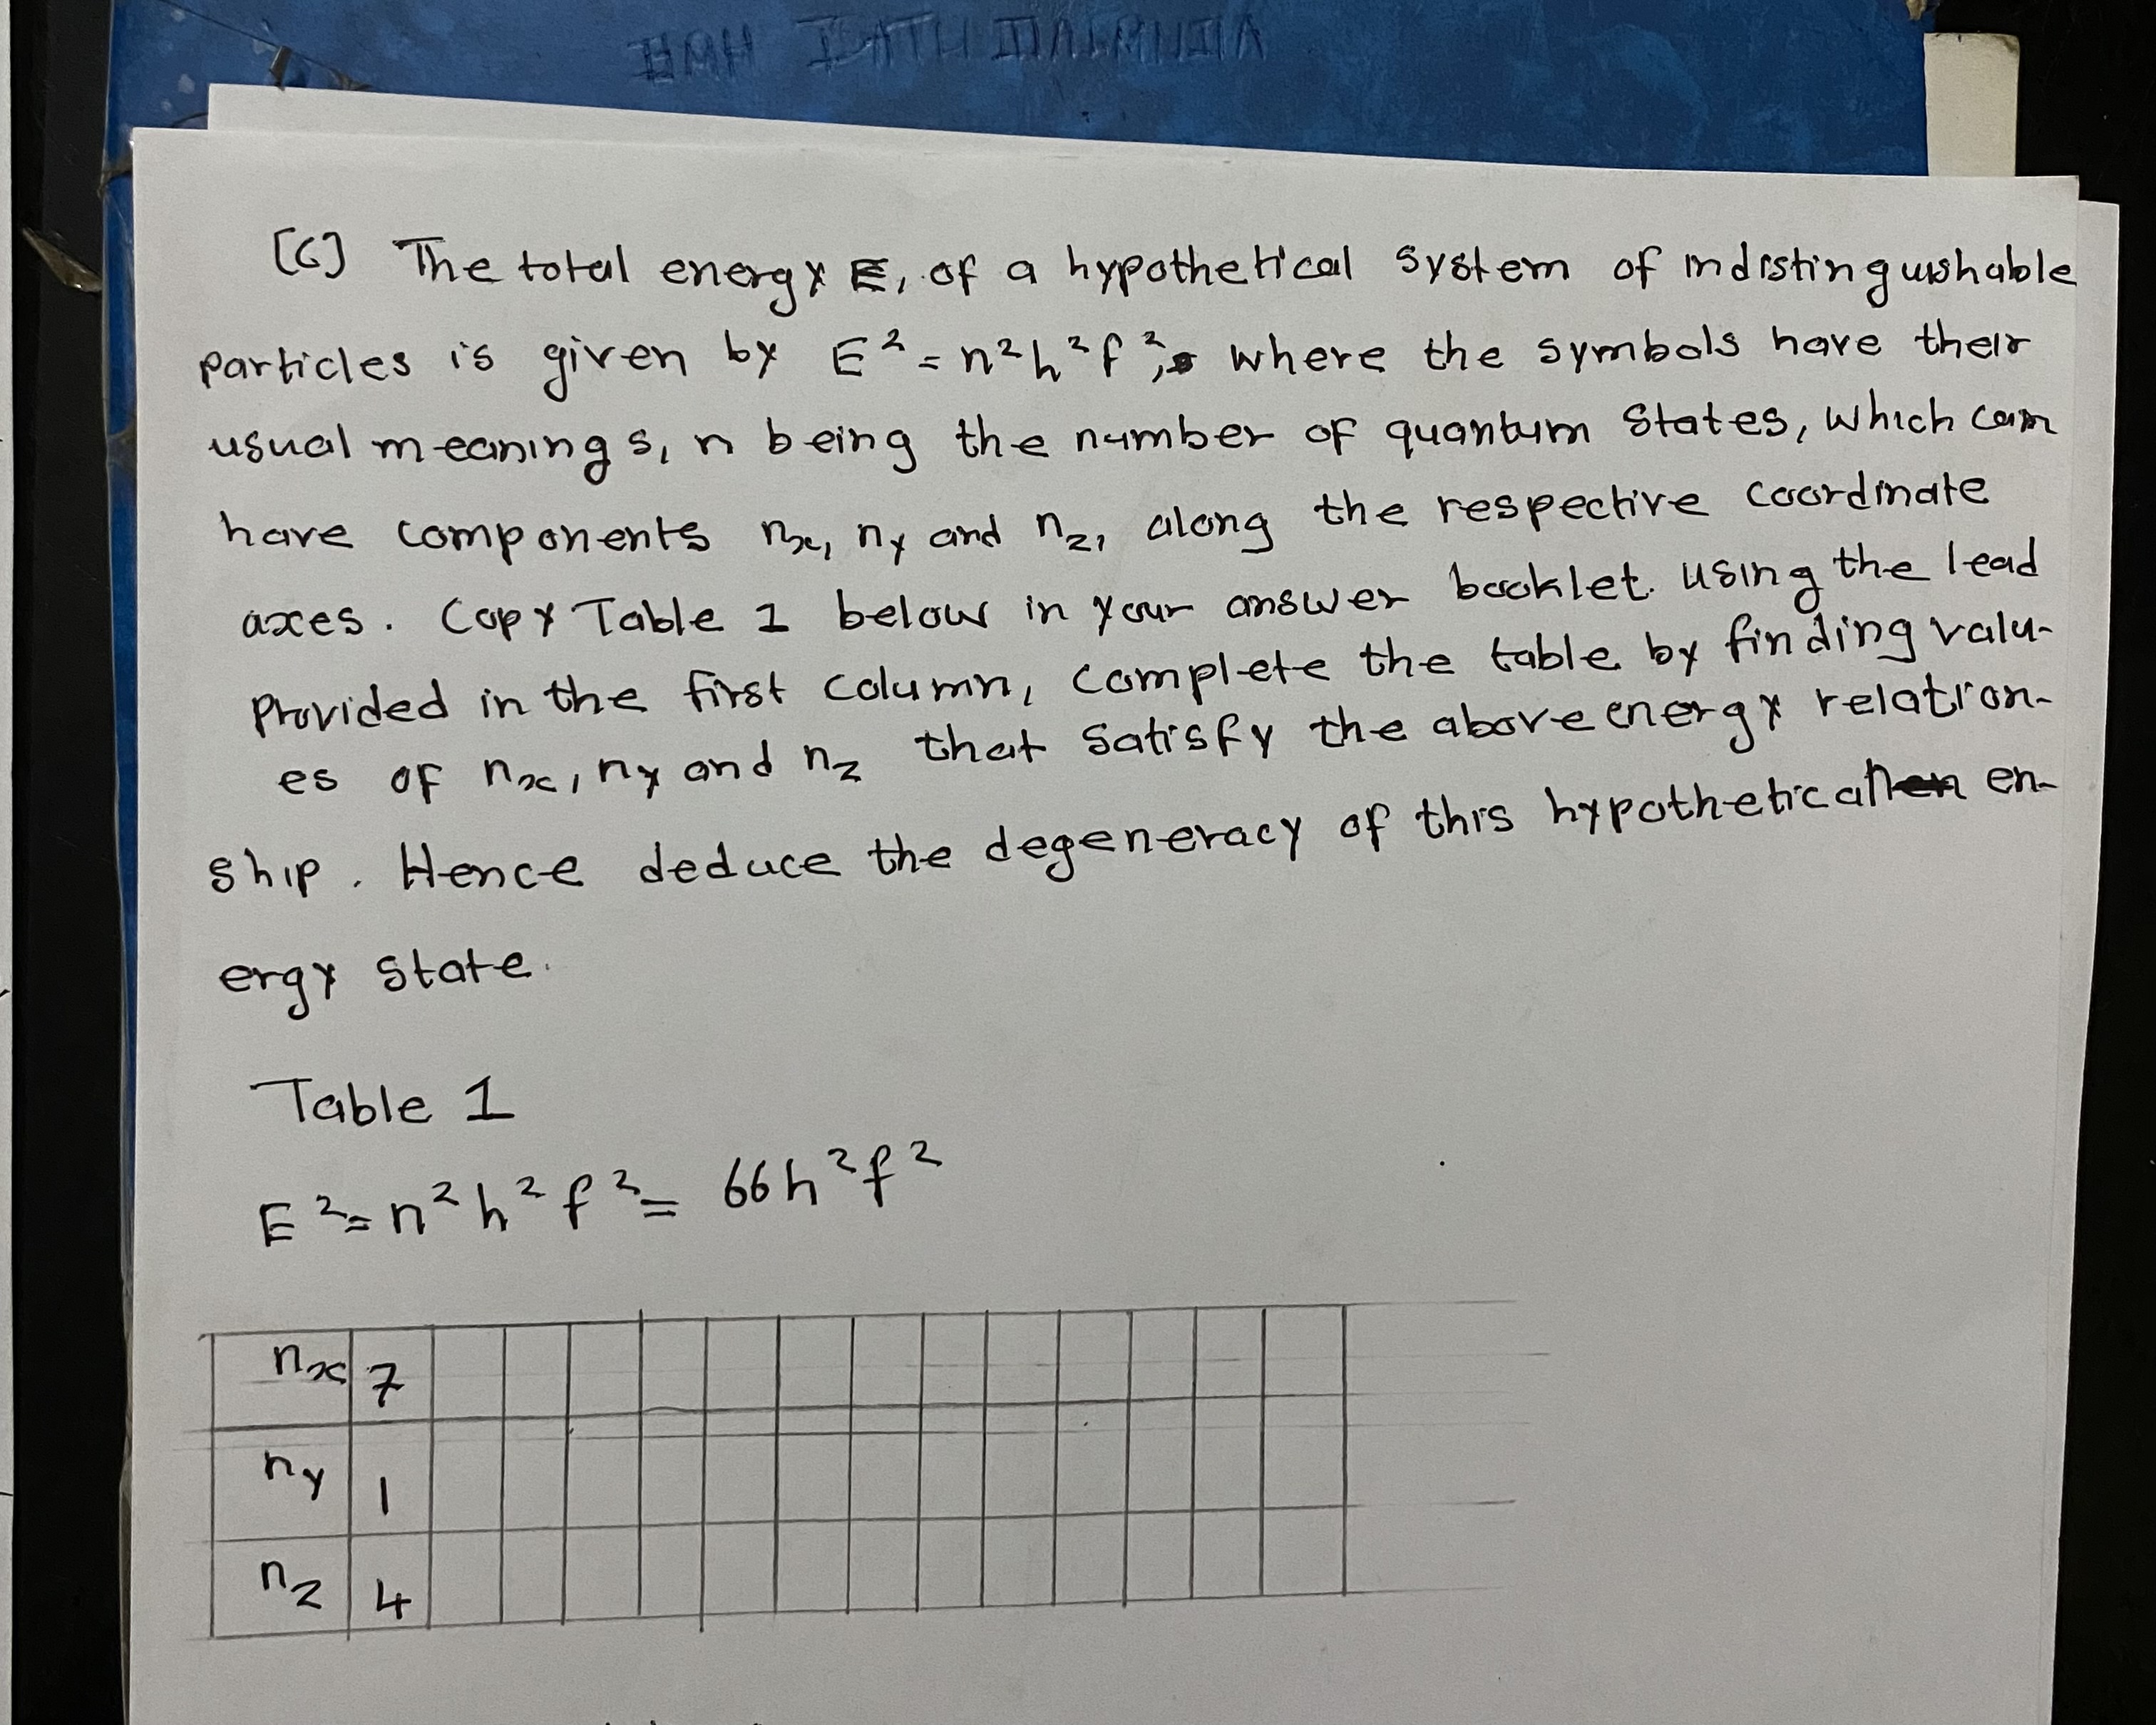 [6] The total energy E, of a hypothetical system of indistinguishable
particles is given by E² = n²h²f², where the symbols have their
usual meanings, n being the number of quantum states, which can
have components nx, ny and nz, along the respective coordinate
axes. Copy Table 1 below in your answer booklet. using the lead
provided in the first column, complete the table by finding valu-
es of nx, ny and nz that satisfy the above energy relation-
ship. Hence deduce the degeneracy of this hypothetical en-
ergy state.
Table 1
E² = n²h²f² = 66h²f²
nx 7
ny 1
nz 4